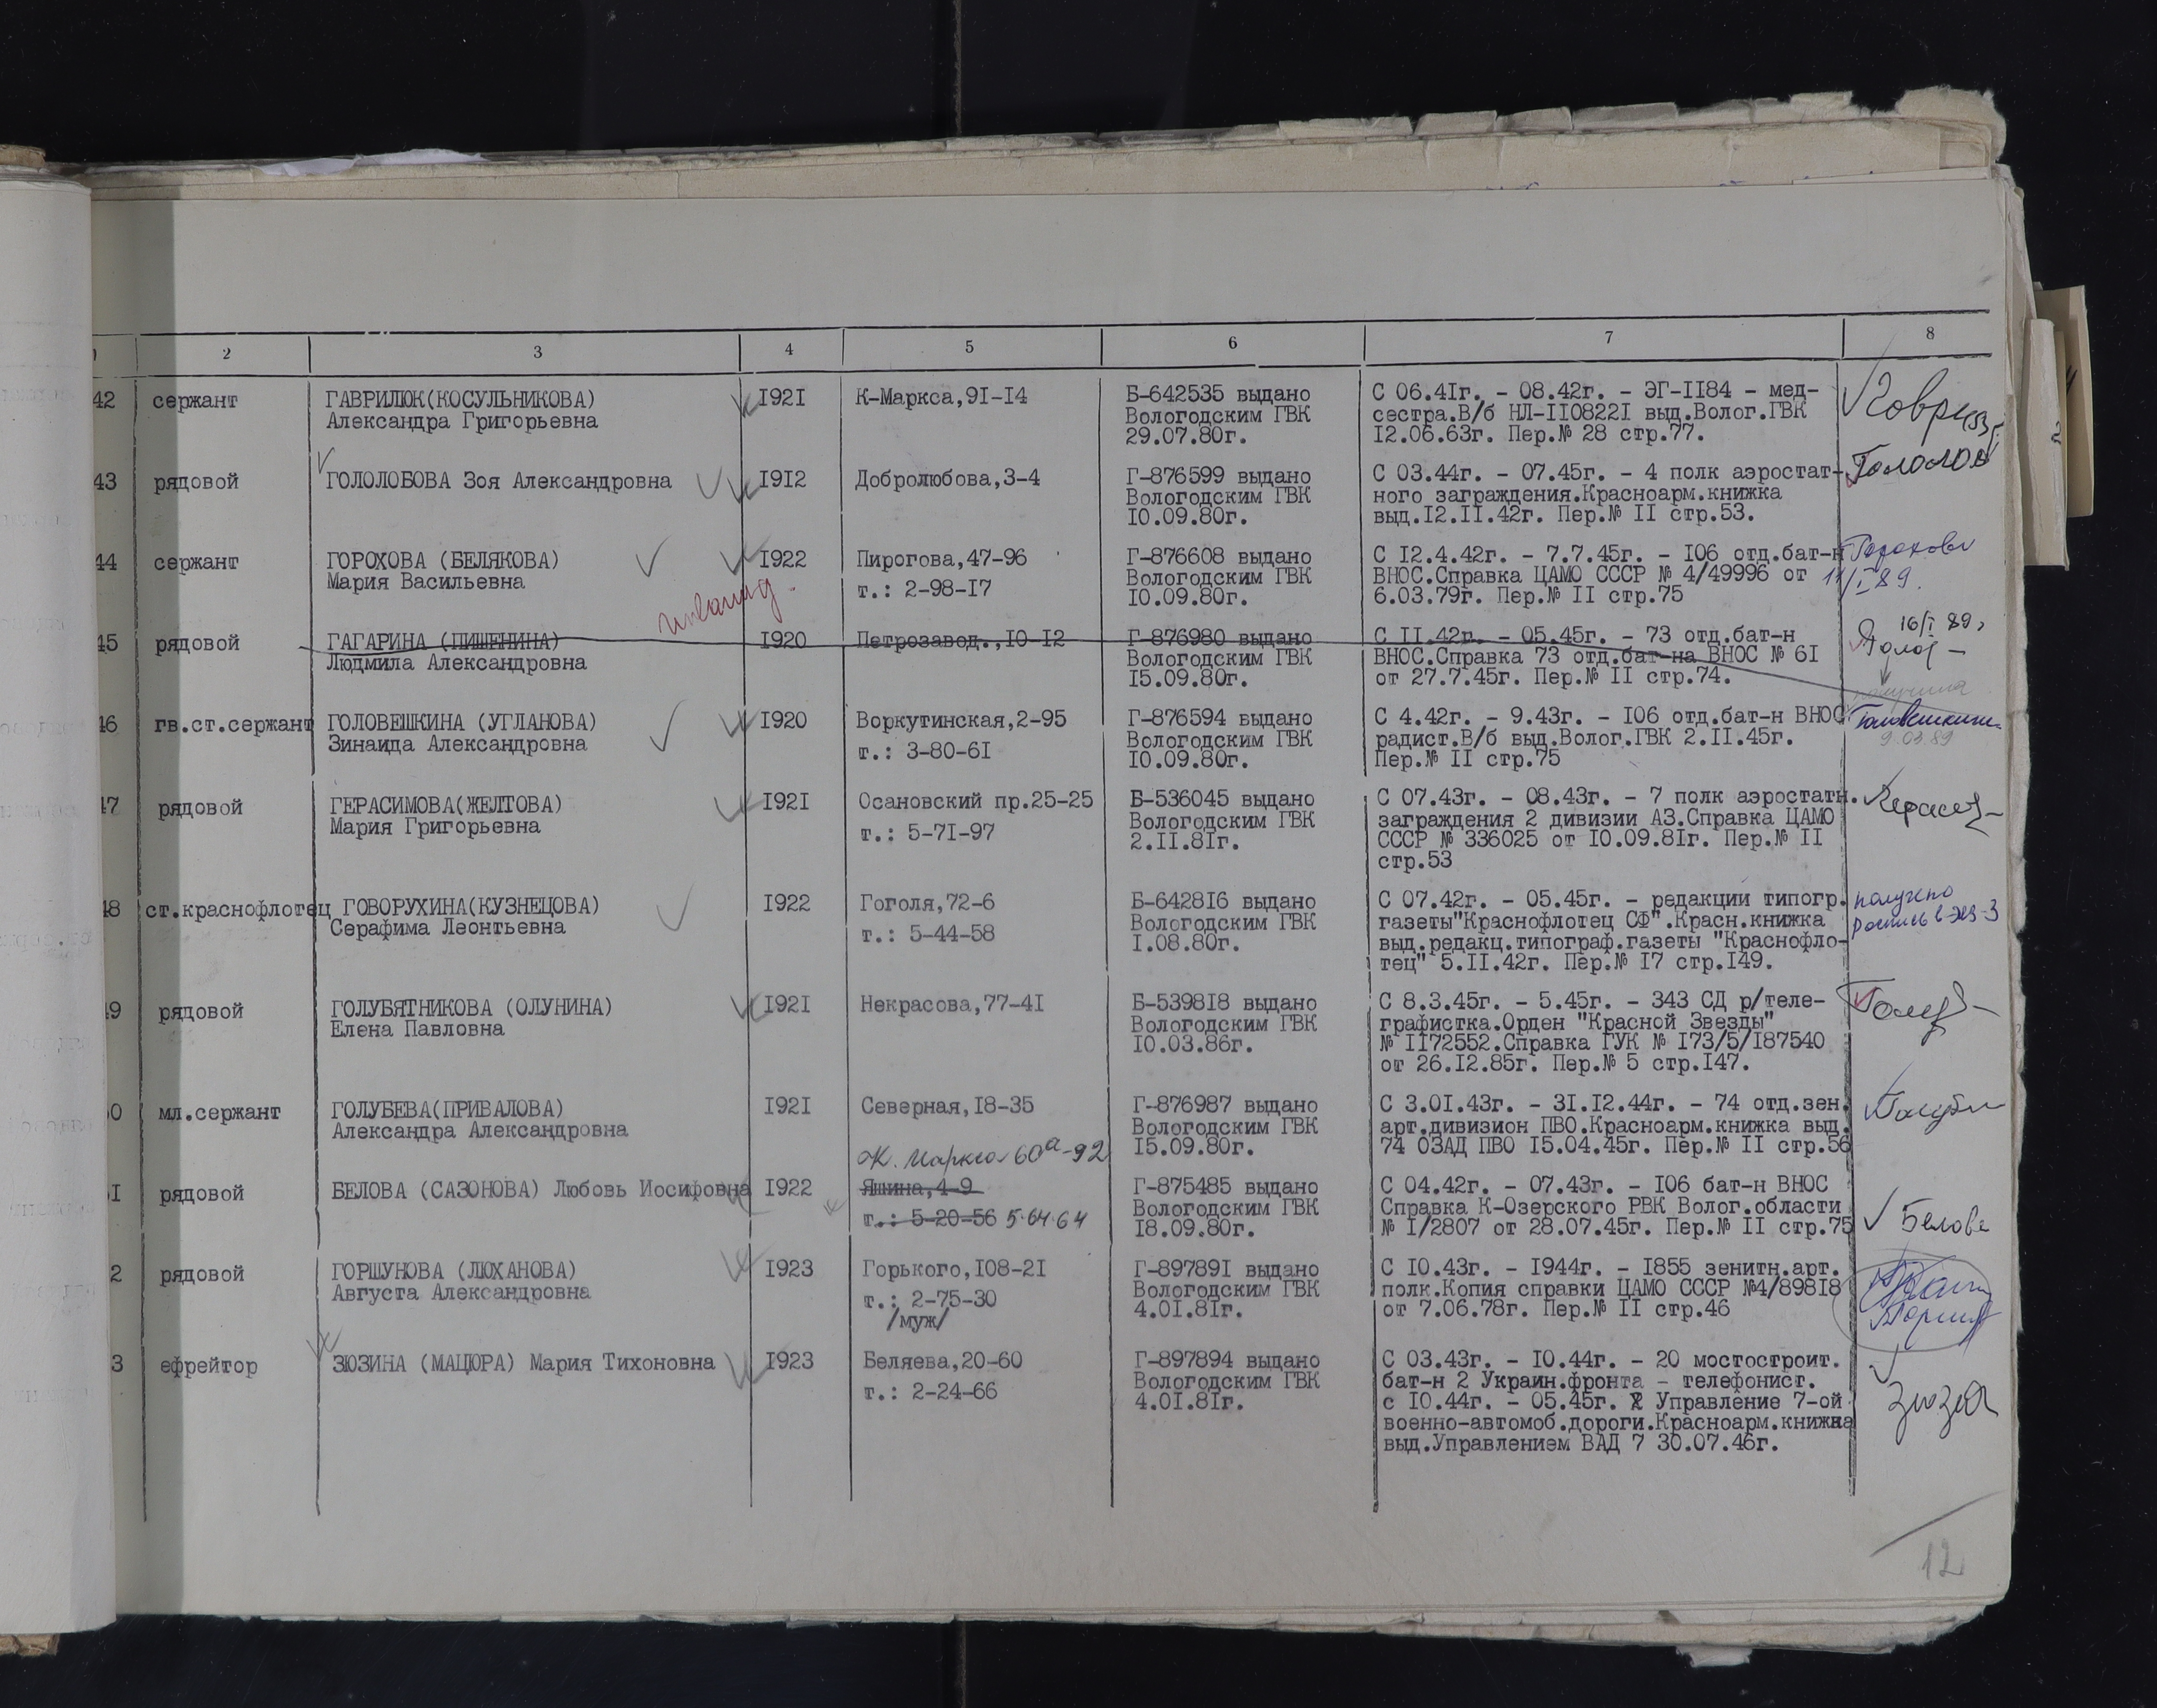 2 3 4 5 6 7 8
42 сержант ГАВРИЛЮК(КОСУЛЬНИКОВА) I92I К-Маркса,9I-I4 Б-642535 выдано С 06.4Iг. - 08.42г. - ЭГ-II84 - мед-
Александра Григорьевна Вологодским ГВК сестра.В/б НЛ-II0822I выд.Волог.ГВК
29.07.80г. I2.06.63г. Пер.№ 28 стр.77.
43 рядовой ГОЛОЛОБОВА Зоя Александровна I9I2 Добролюбова,3-4 Г-876599 выдано С 03.44г. - 07.45г. - 4 полк аэростат- Гололоб
Вологодским ГВК ного заграждения.Красноарм.книжка
I0.09.80г. выд.I2.II.42г. Пер.№ II стр.53.
44 сержант ГОРОХОВА (БЕЛЯКОВА) I922 Пирогова,47-96 Г-876608 выдано С I2.4.42г. - 7.7.45г. - I06 отд.бат-н Горохова
Мария Васильевна т.: 2-98-I7 Вологодским ГВК ВНОС.Справка ЦАМО СССР № 4/49996 от 11/I 89.
I0.09.80г. 6.03.79г. Пер.№ II стр.75
инвалид.
45 рядовой ГАГАРИНА (ПИШЕНИНА) I920 Петрозавод.,I0-I2 Г-876980 выдано С II.42г. - 05.45г. - 73 отд.бат-н 16/I 89г
Людмила Александровна Вологодским ГВК ВНОС.Справка 73 отд.бат-на ВНОС № 6I
I5.09.80г. от 27.7.45г. Пер.№ II стр.74.
46 гв.ст.сержант ГОЛОВЕШКИНА (УГЛАНОВА) I920 Воркутинская,2-95 Г-876594 выдано С 4.42г. - 9.43г. - I06 отд.бат-н ВНОС Головешкина
Зинаида Александровна т.: 3-80-6I Вологодским ГВК радист.В/б выд.Волог.ГВК 2.II.45г. 9.03.89
I0.09.80г. Пер.№ II стр.75
47 рядовой ГЕРАСИМОВА(ЖЕЛТОВА) I92I Осановский пр.25-25 Б-536045 выдано С 07.43г. - 08.43г. - 7 полк аэростатн.
Мария Григорьевна т.: 5-7I-97 Вологодским ГВК заграждения 2 дивизии АЗ.Справка ЦАМО
2.II.8Iг. СССР № 336025 от I0.09.8Iг. Пер.№ II
стр.53
48 ст.краснофлотец ГОВОРУХИНА(КУЗНЕЦОВА) I922 Гоголя,72-6 Б-6428I6 выдано С 07.42г. - 05.45г. - редакции типогр. получено
Серафима Леонтьевна т.: 5-44-58 Вологодским ГВК газеты"Краснофлотец СФ".Красн.книжка роспись в экз-3
I.08.80г. выд.редакц.типограф.газеты "Краснофло-
тец" 5.II.42г. Пер.№ I7 стр.I49.
49 рядовой ГОЛУБЯТНИКОВА (ОЛУНИНА) I92I Некрасова,77-4I Б-5398I8 выдано С 8.3.45г. - 5.45г. - 343 СД р/теле-
Елена Павловна Вологодским ГВК графистка.Орден "Красной Звезды"
I0.03.86г. № II72552.Справка ГУК № I73/5/I87540
от 26.I2.85г. Пер.№ 5 стр.I47.
0 мл.сержант ГОЛУБЕВА(ПРИВАЛОВА) I92I Северная,I8-35 Г-876987 выдано С 3.0I.43г. - 3I.I2.44г. - 74 отд.зен.
Александра Александровна Вологодским ГВК арт.дивизион ПВО.Красноарм.книжка выд.
К. Маркса 60а-92 I5.09.80г. 74 ОЗАД ПВО I5.04.45г. Пер.№ II стр.56
I рядовой БЕЛОВА (САЗОНОВА) Любовь Иосифовна I922 Яшина,4-9 Г-875485 выдано С 04.42г. - 07.43г. - I06 бат-н ВНОС
т.: 5-20-56 5-64-64 Вологодским ГВК Справка К-Озерского РВК Волог.области Белова
I8.09.80г. № I/2807 от 28.07.45г. Пер.№ II стр.75
2 рядовой ГОРШУНОВА (ЛЮХАНОВА) I923 Горького,I08-2I Г-89789I выдано С I0.43г. - I944г. - I855 зенитн.арт.
Августа Александровна т.: 2-75-30 Вологодским ГВК полк.Копия справки ЦАМО СССР №4/898I8
/муж/ 4.0I.8Iг. от 7.06.78г. Пер.№ II стр.46
3 ефрейтор ЗЮЗИНА (МАЦЮРА) Мария Тихоновна I923 Беляева,20-60 Г-897894 выдано С 03.43г. - I0.44г. - 20 мостостроит.
т.: 2-24-66 Вологодским ГВК бат-н 2 Украин.фронта - телефонист.
4.0I.8Iг. с I0.44г. - 05.45г. Управление 7-ой
военно-автомоб.дороги.Красноарм.книжка
выд.Управлением ВАД 7 30.07.46г.
12